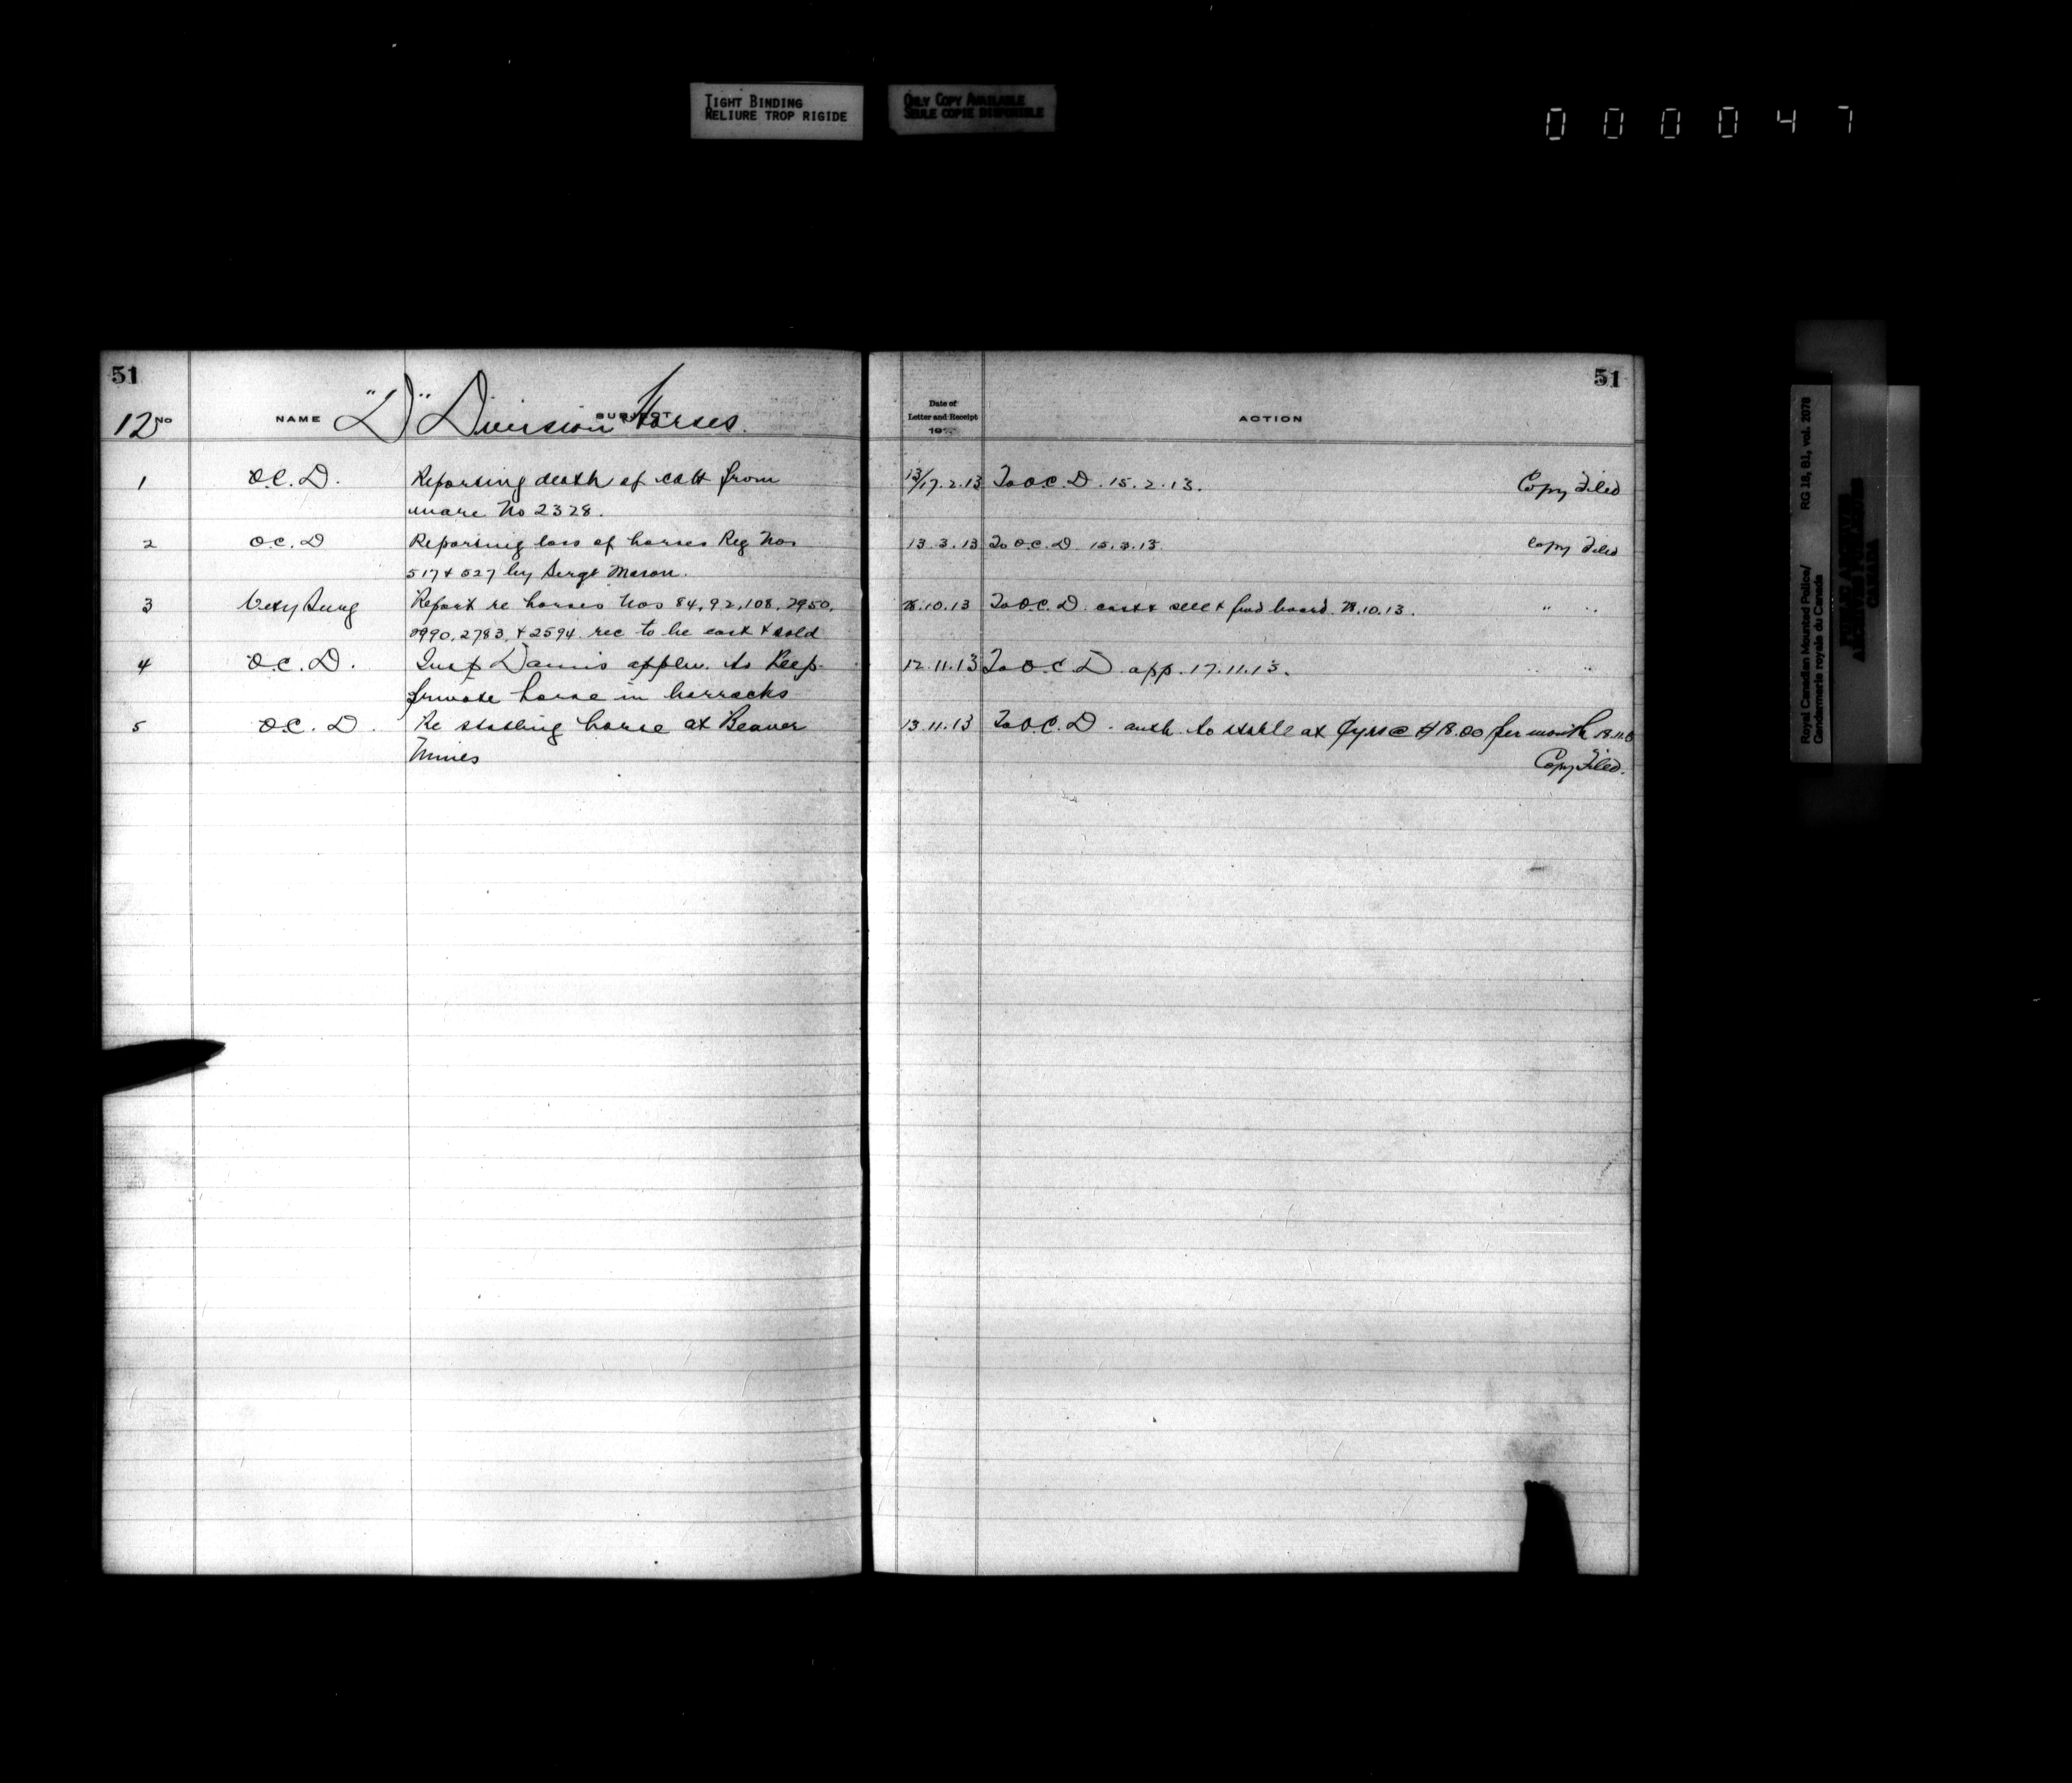 TIGHT BINDING
RELIURE TROP RIGIDE
ONLY COPY AVAILABLE
SEULE COPIE DISPONIBLE
000047
51
12 No NAME SUBJECT
"D" Division Horses.
1 O.C. D. Reporting death of colt from
mare No 2328.
2 O.C. D Reporting loss of horses Reg Nos
517 & 527 by Sergt Mason.
3 Vety Surg Report re horses Nos 84, 92, 108, 2950,
2990, 2783, & 2594 rec to be cast & sold
4 O.C. D. Insp appln. to keep
private horse in barracks
5 O.C. D. Re stabling horse at Beaver
Mines
51
Date of
Letter and Receipt
19
ACTION
13/17.2.13 To O.C. D. 15.2.13. Copy Filed
13.3.13 To O.C. D 15.3.13. Copy Filed
28.10.13 To O.C. D. cast & sell & fwd board 28.10.13. " "
12.11.13 To O.C. D app. 17.11.13. " "
13.11.13 To O.C. D. auth to stable at @ $18.00 per month 18.11.13
Copy Filed.
Royal Canadian Mounted Police/
Gendarmerie royale du Canada
RG 18, B1, vol. 2078
PUBLIC ARCHIVES
ARCHIVES PUBLIQUES
CANADA